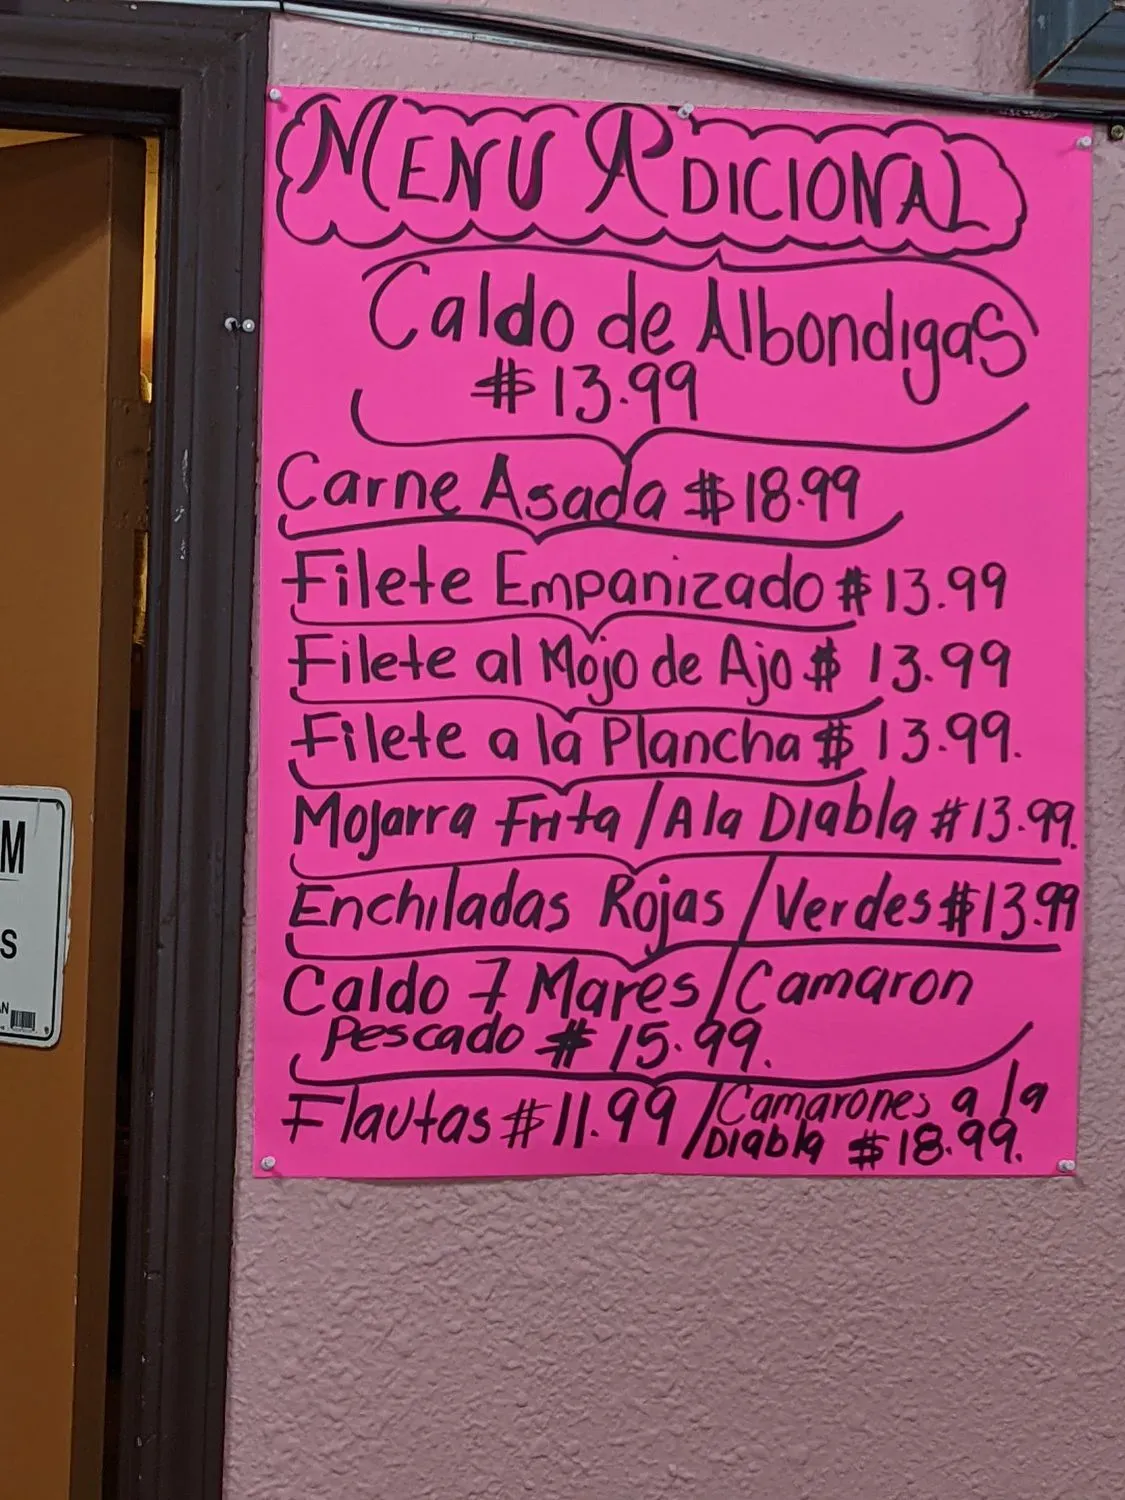 MENU ADICIONAL
Caldo de Albondigas
$13.99
Carne Asada $18.99
Filete Empanizado $13.99
Filete al Mojo de Ajo $ 13.99
Filete a la Plancha $ 13.99.
Mojarra Frita / A la Diabla $13.99.
Enchiladas Rojas / Verdes $13.99
Caldo 7 Mares / Camaron
Pescado $ 15.99.
Flautas $11.99 / Camarones a la
Diabla $18.99.
M
S